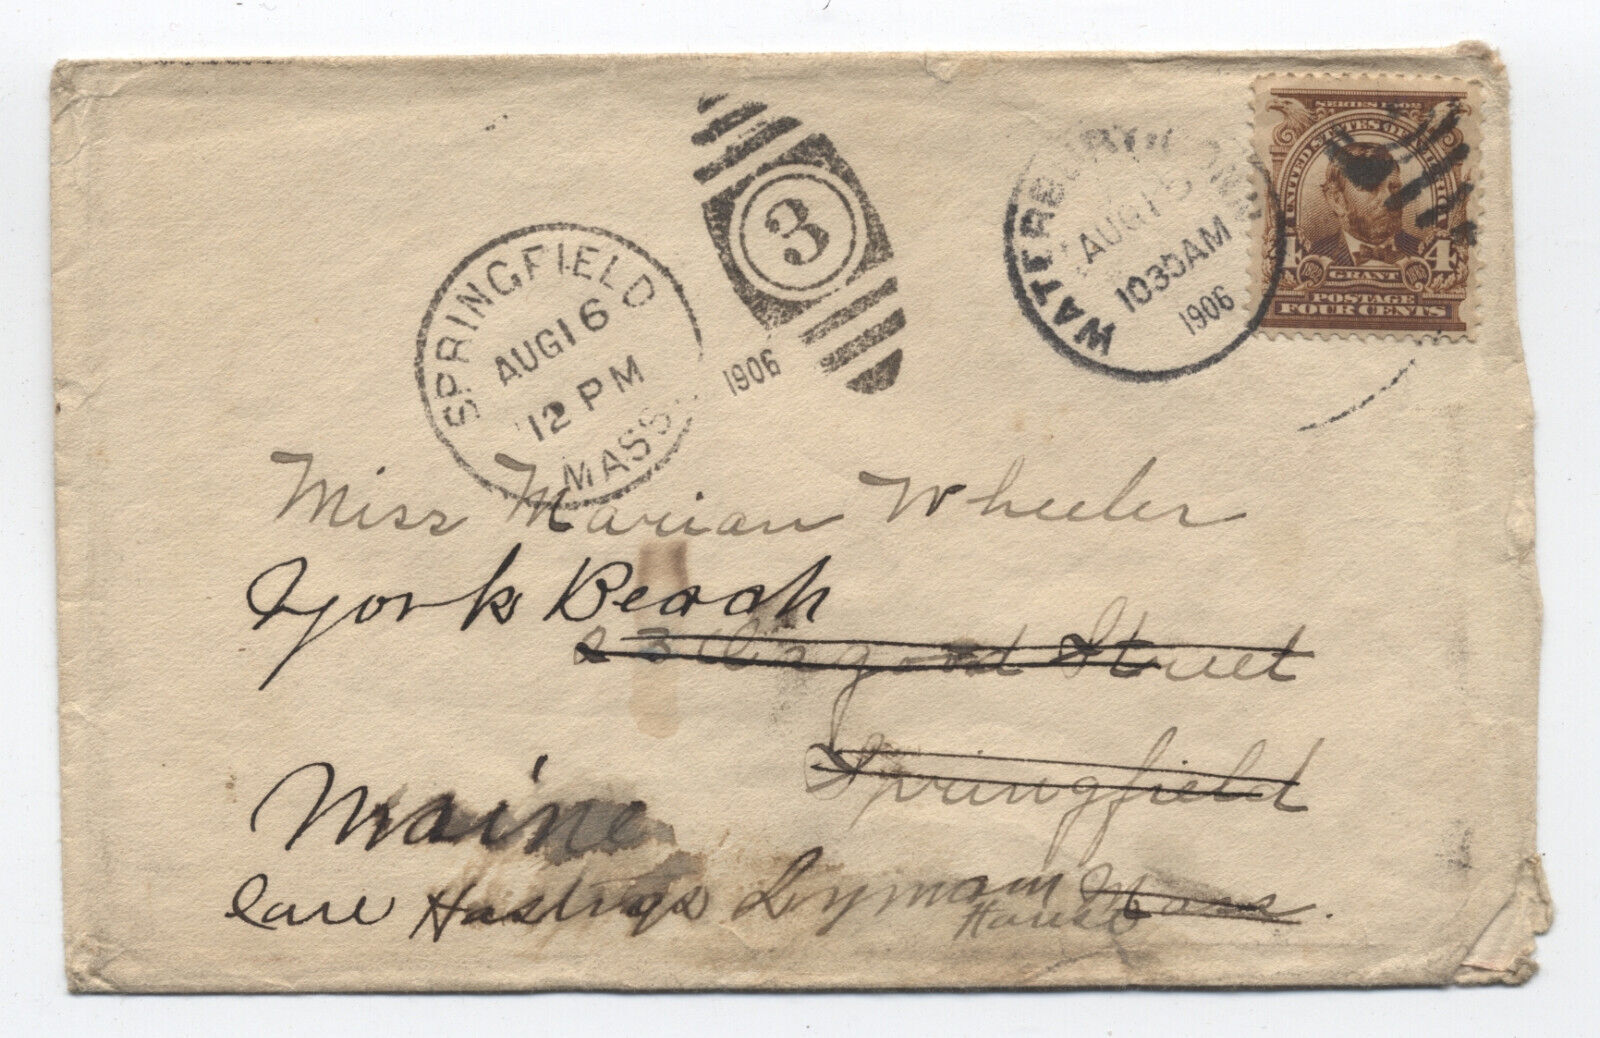 SERIES 1902
UNITED STATES OF AMERICA
4 4
1822 GRANT 1885
POSTAGE
FOUR CENTS
WATERBURY CONN
AUG 15
1030AM
1906
3
1906
SPRINGFIELD
AUG 16
12 PM
MASS.
Miss Marian Wheeler
York Beach
Street
Maine
Springfield
Care Hastings Lyman Mass.
House